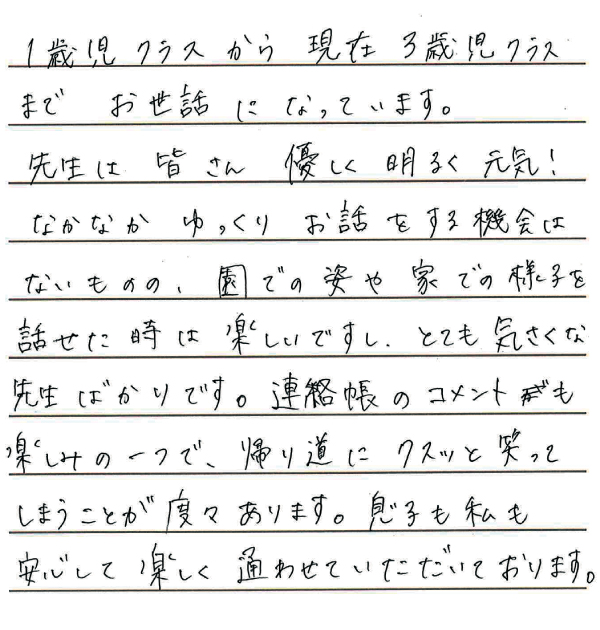 1歳児クラスから 現在 3歳児クラス
まで お世話になっています。
先生は 皆さん 優しく 明るく 元気!
なかなか ゆっくり お話をする機会は
ないものの、園での姿や 家での様子を
話せた時は 楽しいですし、とても気さくな
先生ばかりです。連絡帳のコメントも
楽しみの一つで、帰り道に クスッと笑って
しまうことが 度々あります。息子も私も
安心して 楽しく 通わせていただいております。